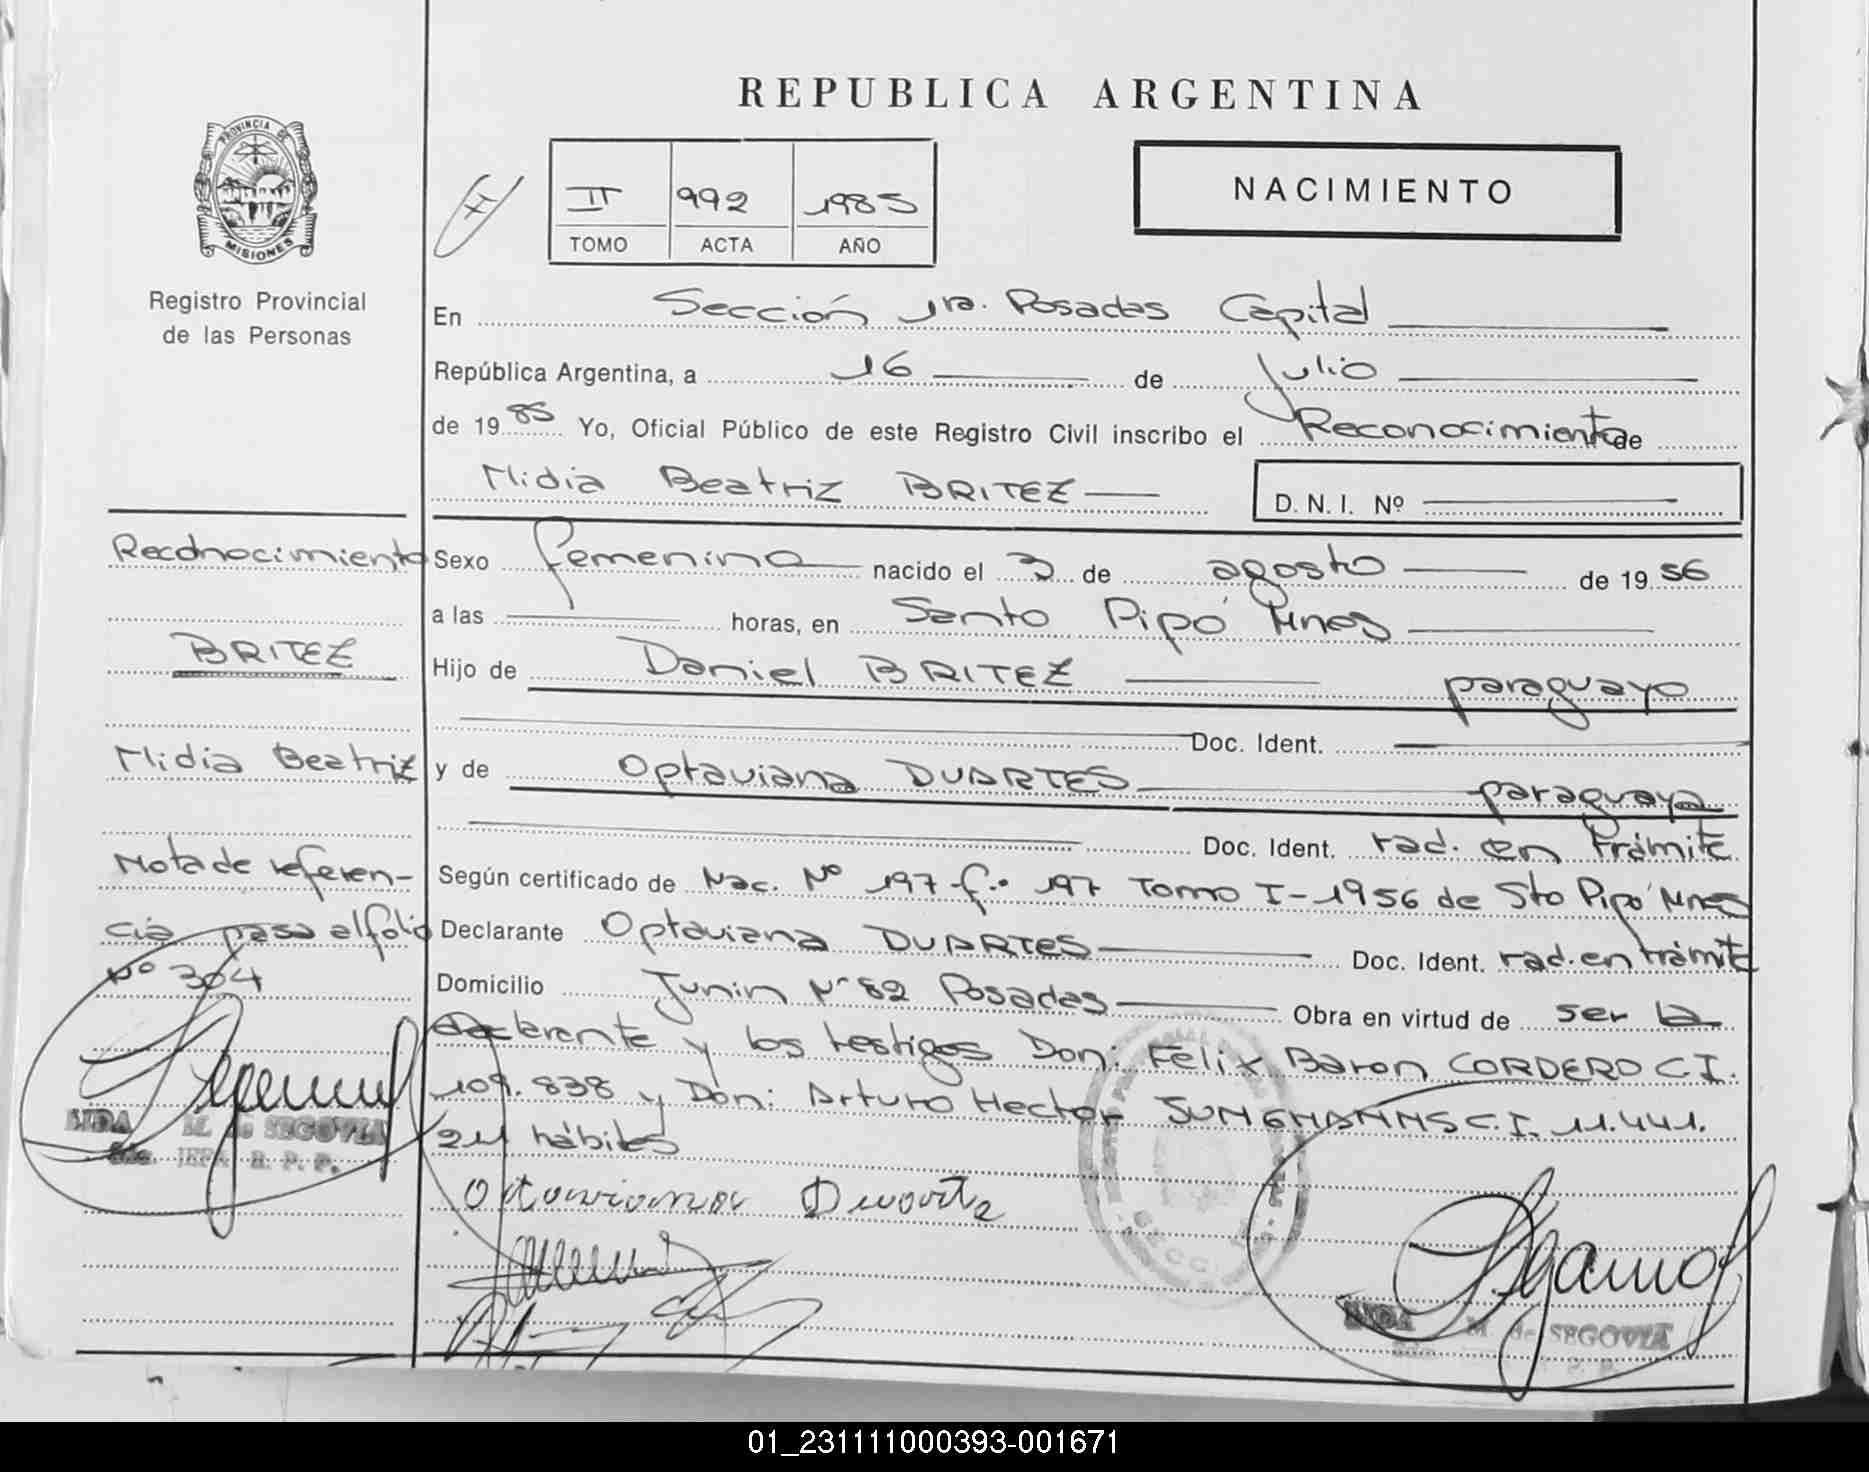 REPUBLICA ARGENTINA
PROVINCIA DE
MISIONES
Registro Provincial
de las Personas
II 992 1985
TOMO ACTA AÑO
NACIMIENTO
En Sección 1ra. Posadas Capital
República Argentina, a 16 de Julio
de 1985 Yo, Oficial Público de este Registro Civil inscribo el Reconocimiento de
Nidia Beatriz BRITEZ
D. N. I. Nº
Reconocimiento
BRITEZ
Nidia Beatriz
Nota de referen-
cia pasa al folio
Nº 304
LIDA M. de SEGOVIA
Sexo femenino nacido el 3 de agosto de 1956
a las horas, en Santo Pipó Mnes
Hijo de Daniel BRITEZ paraguayo
Doc. Ident.
y de Optaviana DUARTES paraguaya
Doc. Ident. rad. en trámite
Según certificado de Nac. Nº 197 fº 197 Tomo I-1956 de Sto Pipó Mnes
Declarante Optaviana DUARTES Doc. Ident. rad. en trámite
Domicilio Junin Nº 82 Posadas Obra en virtud de ser la
declarante y los testigos Don: Felix Baron CORDERO C.I.
109.838 y Don: Arturo Hector JUNGHANNS C.I. 11.441.
hábiles
Octaviana Duarte
M. de SEGOVIA
01_231111000393-001671